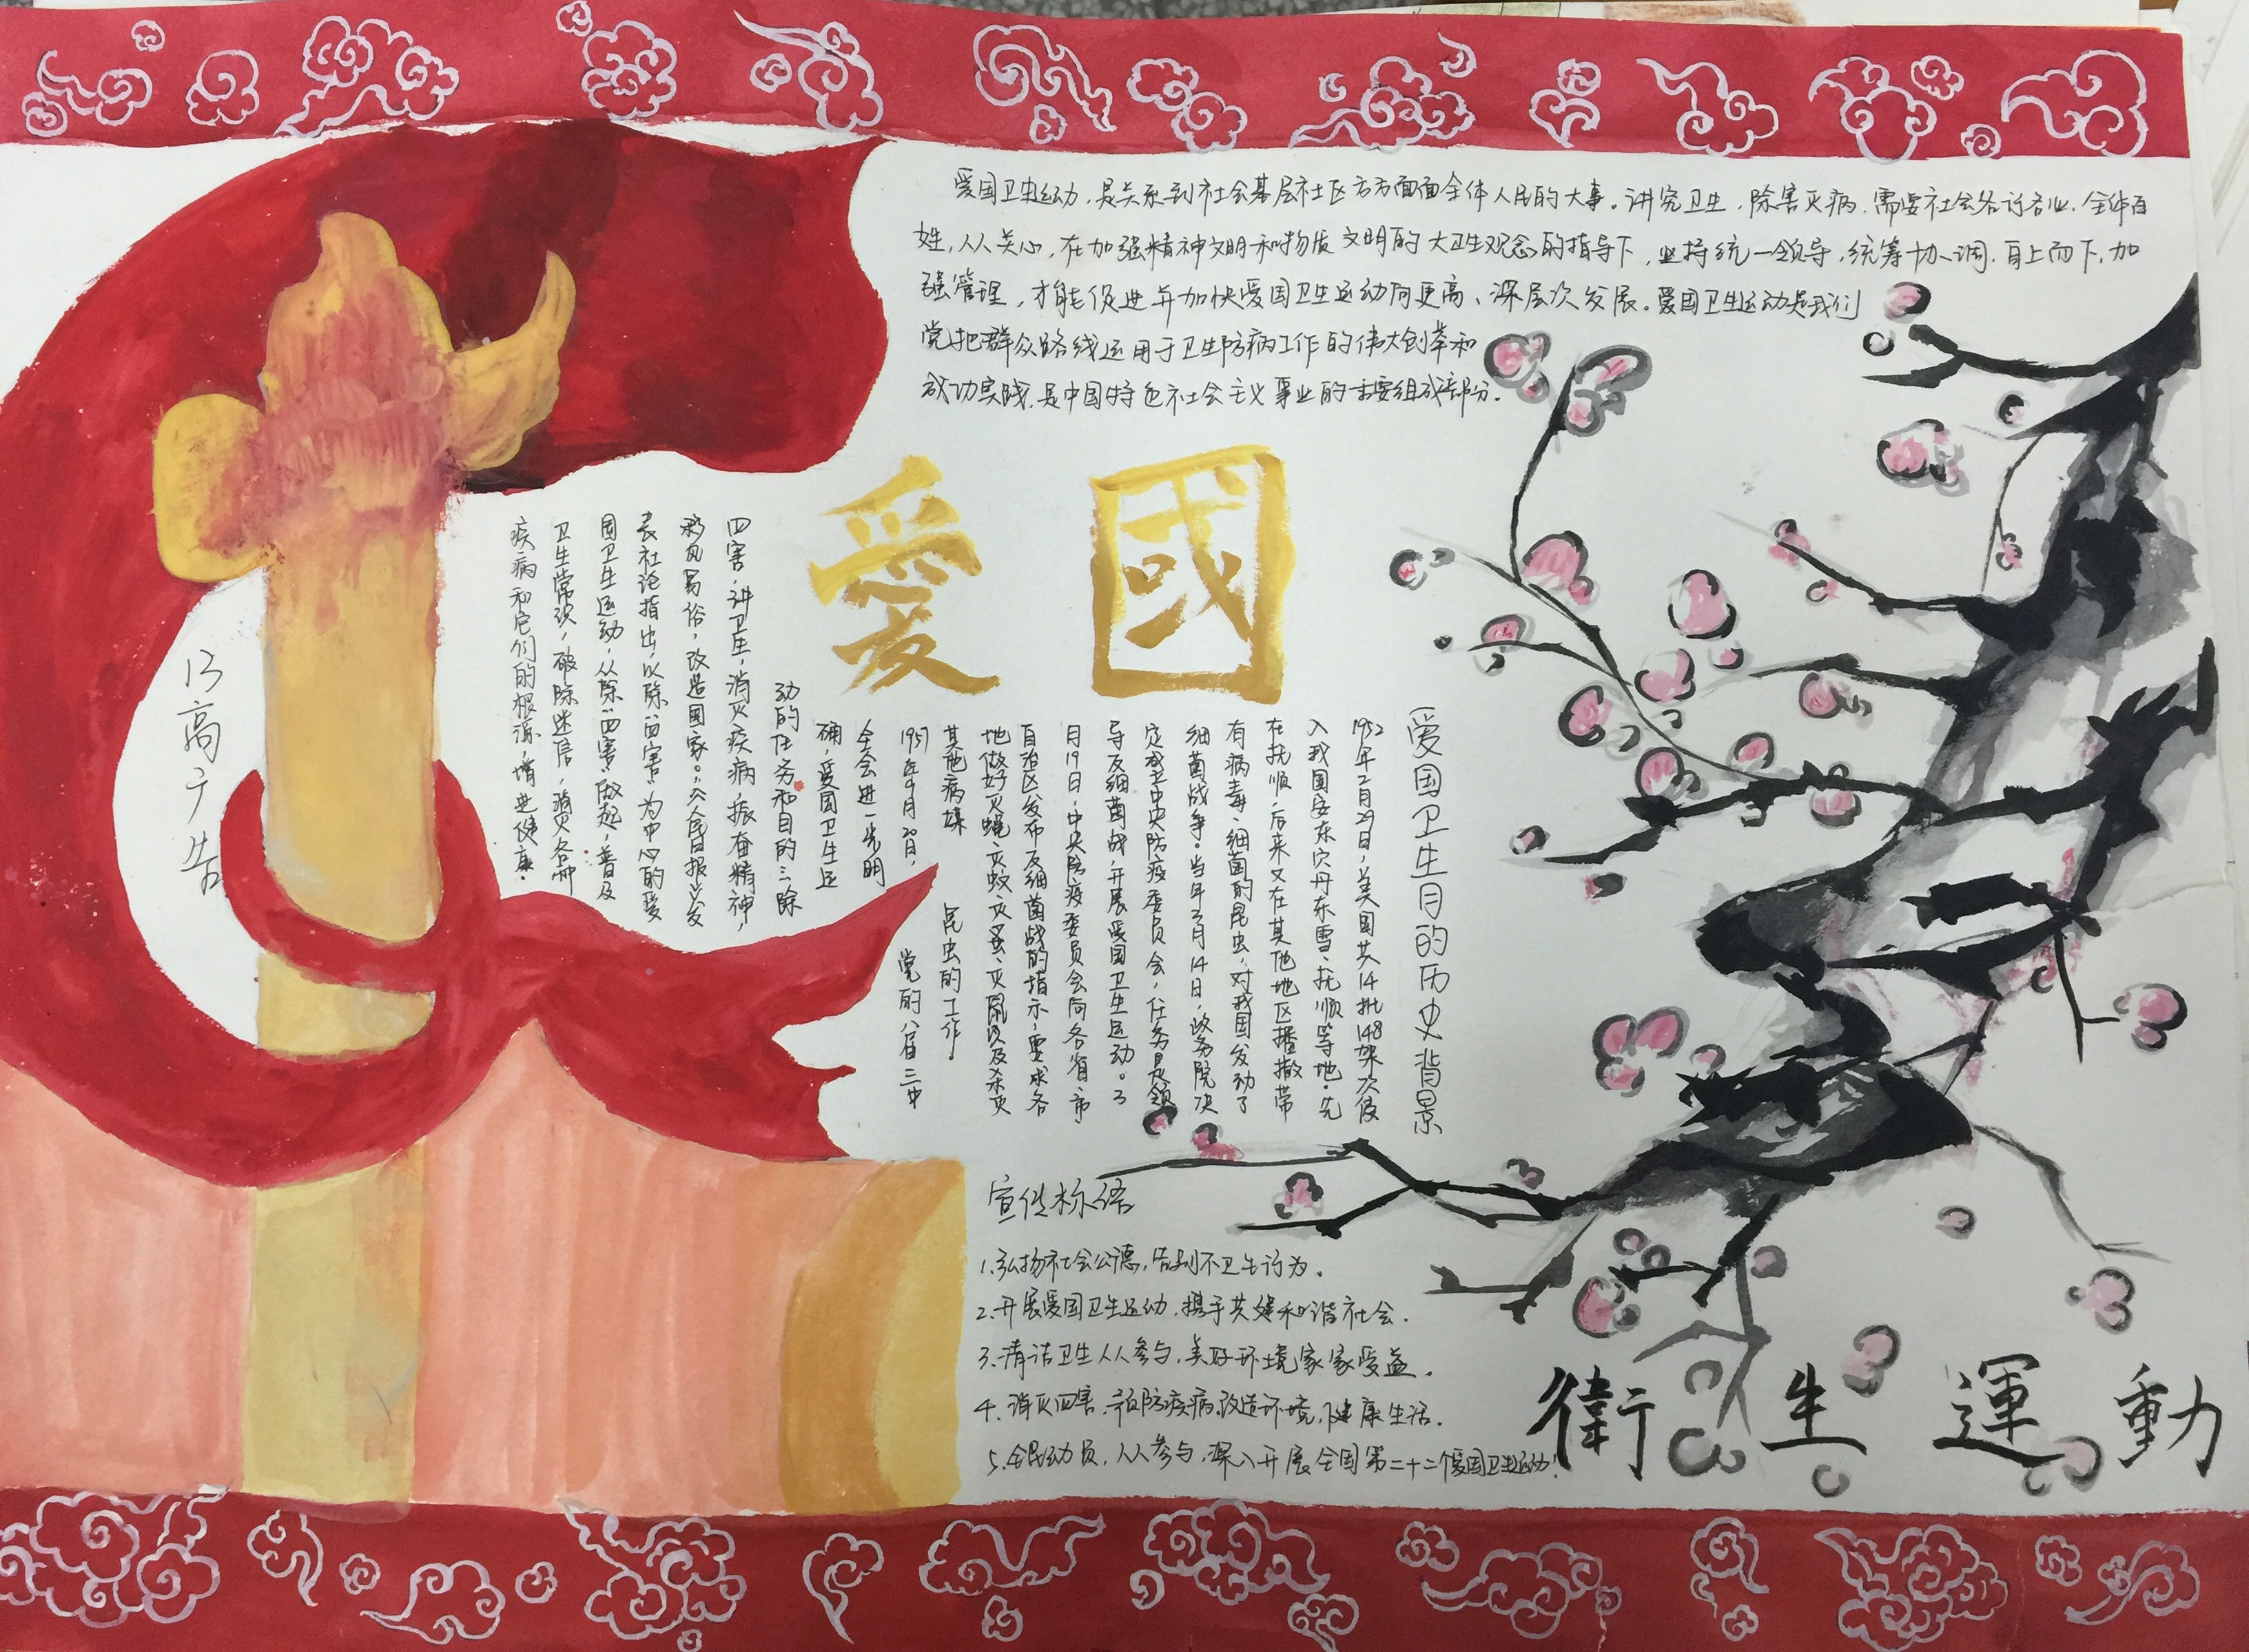 爱国卫生运动，是关系到社会基层社区方方面面全体人民的大事。讲究卫生，除害灭病，需要社会各行各业，全体百
姓，人人关心，在加强精神文明和物质文明的大卫生观念的指导下，坚持统一领导，统筹协调，自上而下，加
强管理，才能促进并加快爱国卫生运动向更高、深层次发展。爱国卫生运动是我们
党把群众路线运用于卫生防病工作的伟大创举和
成功实践，是中国特色社会主义事业的重要组成部分。
愛國
爱国卫生月的历史背景
1952年2月29日，美国共14批148架次侵
入我国安东穴丹东雪、抚顺等地。先
在抚顺，后来又在其他地区播撒带
有病毒、细菌的昆虫，对我国发动了
细菌战争。当年3月14日，政务院决
定成立中央防疫委员会，任务是领
导反细菌战，开展爱国卫生运动。3
月19日，中央防疫委员会向各省市
自治区发布反细菌战的指示，要求各
地做好灭蝇、灭蚊、灭蚤、灭鼠以及杀灭
其他病媒昆虫的工作。
1957年9月20日，党的八届三中
全会进一步明
确，爱国卫生运
动的任务和目的三除
四害，讲卫生，消灭疾病，振奋精神，
移风易俗，改造国家。”《人民日报》发
表社论指出，以除“四害”为中心的爱
国卫生运动，从除“四害”做起，普及
卫生常识，破除迷信，消灭各种
疾病和它们的根源，增进健康。
13高广告
宣传标语
1.弘扬社会公德，告别不卫生行为。
2.开展爱国卫生运动，携手共建和谐社会。
3.清洁卫生人人参与，美好环境家家受益。
4.消灭四害，预防疾病，改造环境，健康生活。
5.全民动员，人人参与，深入开展全国第二十二个爱国卫生运动！
衛生運動